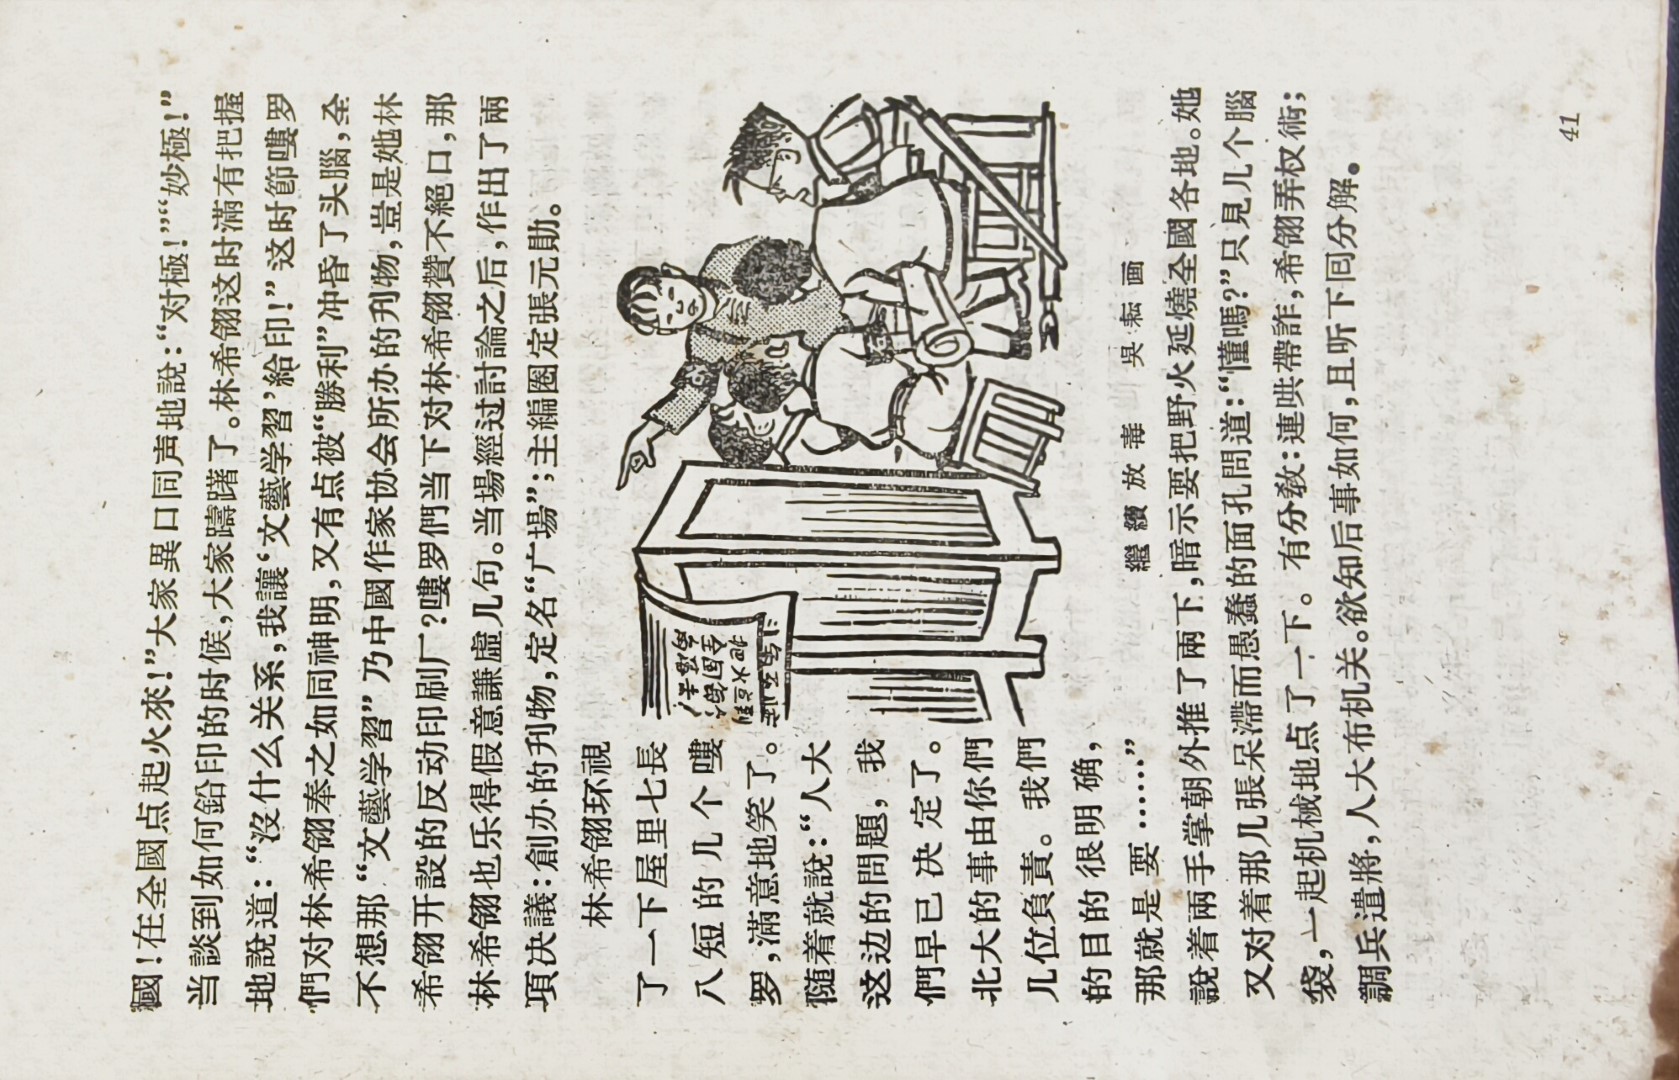 國！在全國点起火來！”大家異口同声地說：“对極！”“妙極！”
当談到如何鉛印的时候，大家躊躇了。林希翎这时滿有把握
地說道：“沒什么关系，我讓‘文藝学習’給印！”这时節嘍罗
們对林希翎奉之如同神明，又有点被“勝利”冲昏了头腦，全
不想那“文藝学習”乃中國作家协会所办的刋物，豈是她林
希翎开設的反动印刷厂？嘍罗們当下对林希翎贊不絕口，那
林希翎也乐得假意謙虛几句。当場經过討論之后，作出了兩
項决議：創办的刋物，定名“广場”；主編圈定張元勛。
林希翎环視
了一下屋里七長
八短的几个嘍
罗，滿意地笑了。
隨着就說：“人大
这边的問題，我
們早已决定了。
北大的事由你們
几位負責。我們
的目的很明确，
那就是要……”
繼續放毒 吳耘画
說着兩手掌朝外推了兩下，暗示要把野火延燒全國各地。她
又对着那几張呆滯而愚蠢的面孔問道：“懂嗎？”只見几个腦
袋，一起机械地点了一下。有分敎：連哄帶詐，希翎弄权術；
調兵遣將，人大布机关。欲知后事如何，且听下回分解。
41